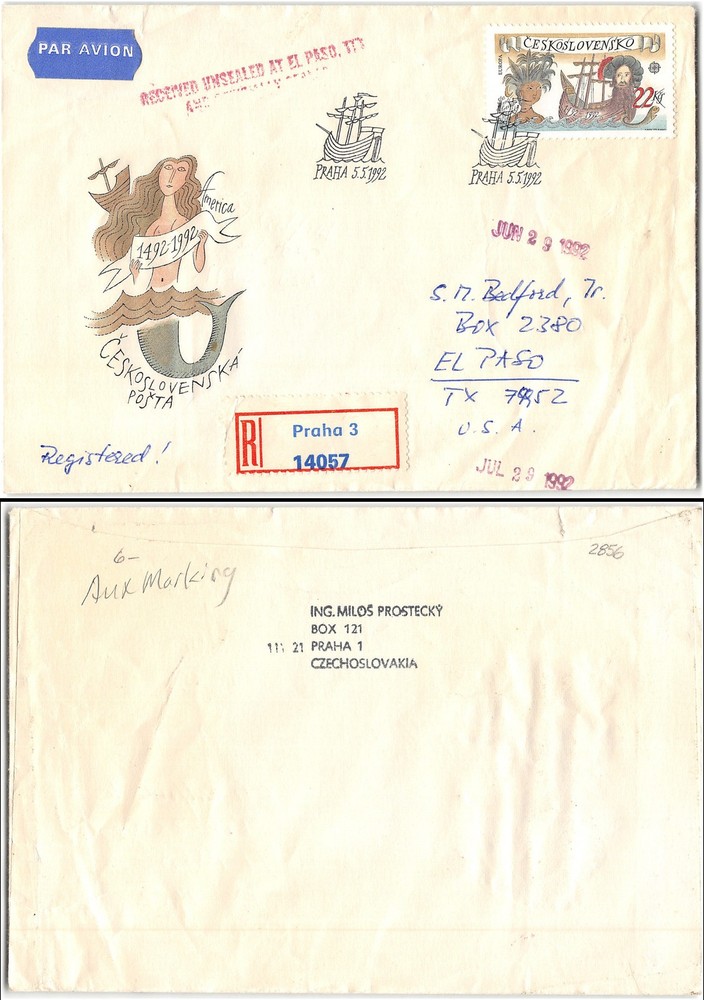 PAR AVION
RECEIVED UNSEALED AT EL PASO, TX
AND
ČESKOSLOVENSKO
EUROPA
22 Kčs
1992
PRAHA 5.5.1992
PRAHA 5.5.1992
America
1492-1992
JUN 29 1992
S. M. Bedford, Jr.
BOX 2380
EL PASO
TX 79952
U. S. A.
ČESKOSLOVENSKÁ
POŠTA
R
Praha 3
14057
Registered!
JUL 29 1992
6-
Aux Marking
2856
ING. MILOŠ PROSTECKÝ
BOX 121
111 21 PRAHA 1
CZECHOSLOVAKIA